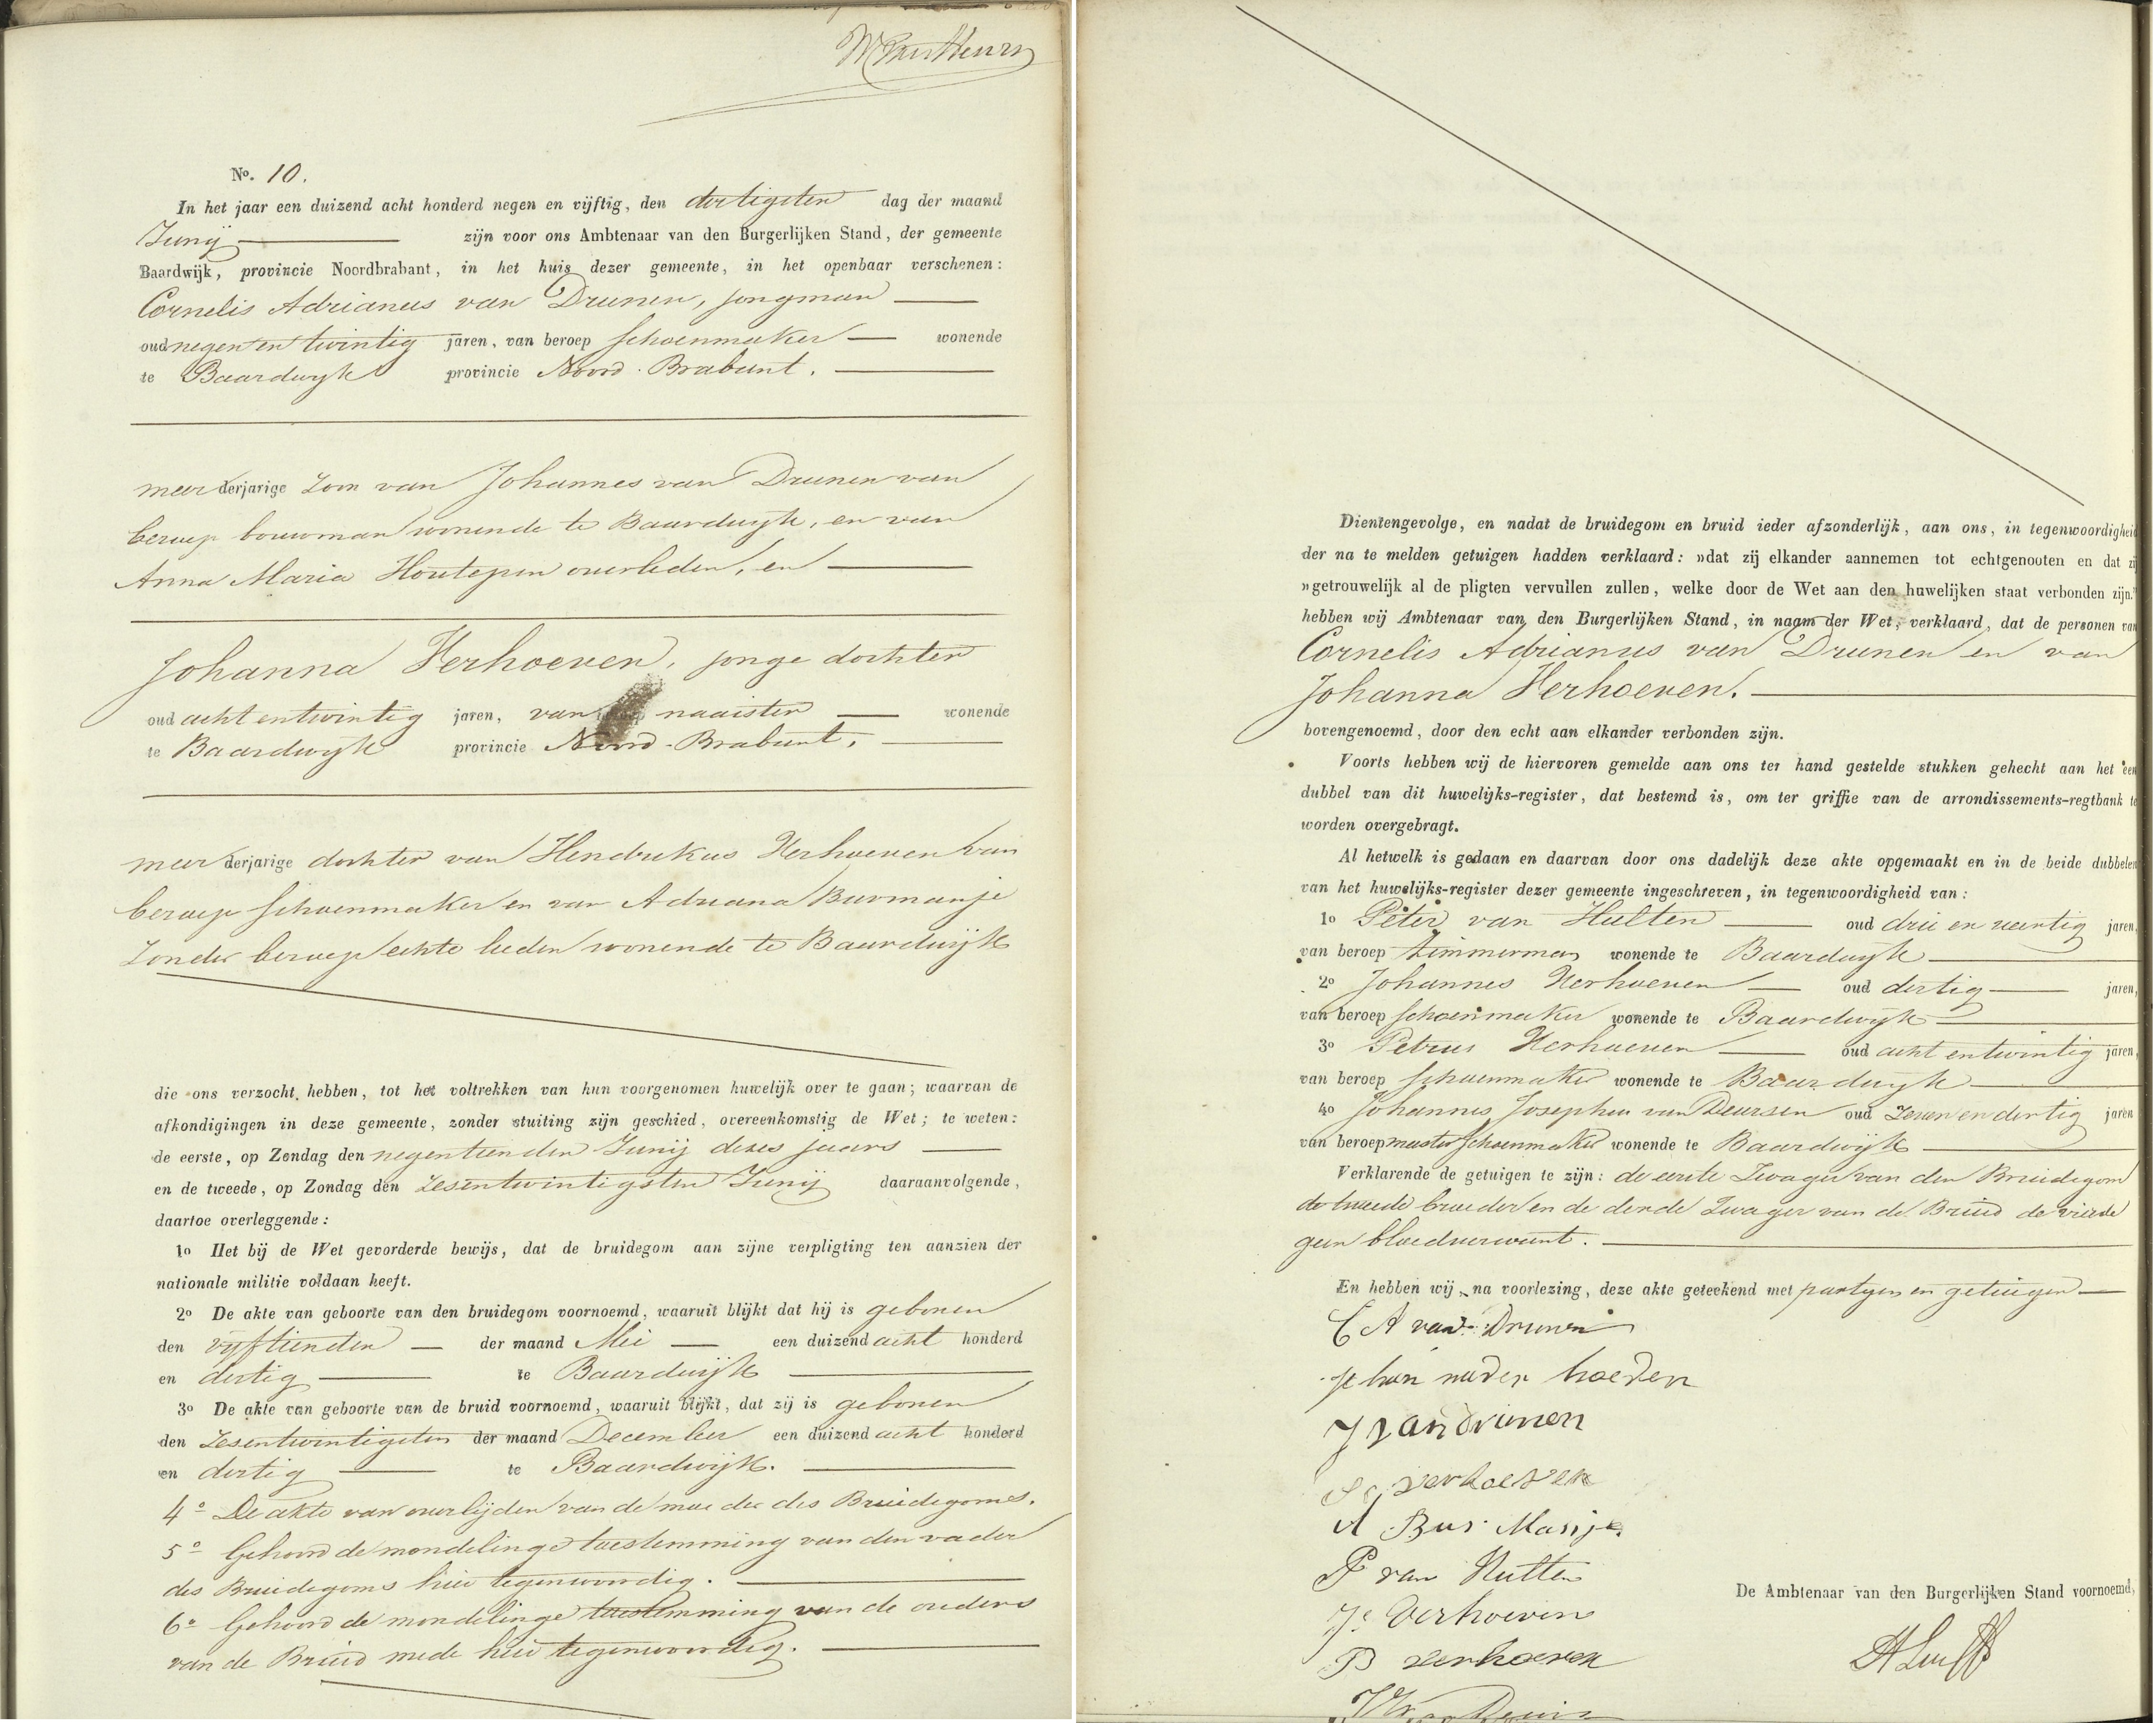 No. 10.
In het jaar een duizend acht honderd negen en vijftig, den dertigsten dag der maand
Junij zijn voor ons Ambtenaar van den Burgerlijken Stand, der gemeente
Baardwijk, provincie Noordbrabant, in het huis dezer gemeente, in het openbaar verschenen:
Cornelis Adrianus van Drunen, jongman
oud negen en twintig jaren, van beroep schoenmaker wonende
te Baardwyk provincie Noord-Brabant.
meerderjarige Zoon van Johannes van Drunen van
beroep bouwman wonende te Baardwyk, en van
Anna Maria Houtepen overleden, en
Johanna Verhoeven, jonge dochter
oud acht en twintig jaren, van naaister wonende
te Baardwyk provincie Noord-Brabant.
meerderjarige dochter van Hendrikus Verhoeven van
beroep schoenmaker en van Adriana Burmanje
Zonder beroep echte lieden wonende te Baardwijk
die ons verzocht hebben, tot het voltrekken van hun voorgenomen huwelijk over te gaan; waarvan de
afkondigingen in deze gemeente, zonder stuiting zijn geschied, overeenkomstig de Wet; te weten:
de eerste, op Zondag den negentienden Junij dezes jaars
en de tweede, op Zondag den Zesentwintigsten Junij daaraanvolgende,
daartoe overleggende:
1o Het bij de Wet gevorderde bewijs, dat de bruidegom aan zijne verpligting ten aanzien der
nationale militie voldaan heeft.
2o De akte van geboorte van den bruidegom voornoemd, waaruit blijkt dat hij is geboren
den vijftienden der maand Mei een duizend acht honderd
en dertig te Baardwijk
3o De akte van geboorte van de bruid voornoemd, waaruit blijkt, dat zij is geboren
den Zesentwintigsten der maand December een duizend acht honderd
en dertig te Baardwijk.
4o De akte van overlijden van de moeder des Bruidegoms.
5o Gehoord de mondelinge toestemming van den vader
des Bruidegoms hier tegenwoordig.
6o Gehoord de mondelinge toestemming van de ouders
van de Bruid mede hier tegenwoordig.
Dientengevolge, en nadat de bruidegom en bruid ieder afzonderlijk, aan ons, in tegenwoordigheid
der na te melden getuigen hadden verklaard: »dat zij elkander aannemen tot echtgenooten en dat zij
»getrouwelijk al de pligten vervullen zullen, welke door de Wet aan den huwelijken staat verbonden zijn."
hebben wij Ambtenaar van den Burgerlijken Stand, in naam der Wet, verklaard, dat de personen van
Cornelis Adrianus van Drunen en van
Johanna Verhoeven.
bovengenoemd, door den echt aan elkander verbonden zijn.
Voorts hebben wij de hiervoren gemelde aan ons ter hand gestelde stukken gehecht aan het een
dubbel van dit huwelijks-register, dat bestemd is, om ter griffie van de arrondissements-regtbank te
worden overgebragt.
Al hetwelk is gedaan en daarvan door ons dadelijk deze akte opgemaakt en in de beide dubbelen
van het huwelijks-register dezer gemeente ingeschreven, in tegenwoordigheid van:
1o Peter van Hulten oud drie en veertig jaren,
van beroep timmerman wonende te Baardwyk
2o Johannes Verhoeven oud dertig jaren,
van beroep schoenmaker wonende te Baardwyk
3o Petrus Verhoeven oud acht en twintig jaren,
van beroep schoenmaker wonende te Baardwyk
4o Johannes Josephus van Deursen oud Zeven en dertig jaren
van beroep meester schoenmaker wonende te Baardwijk
Verklarende de getuigen te zijn: de eerste Zwager van den Bruidegom
de tweede broeder en de derde Zwager van de Bruid de vierde
geen bloedverwant.
En hebben wij, na voorlezing, deze akte geteekend met partyen en getuigen
C A van Drunen
J van Drunen
verhoeven
A Bur Manje
P van Hulten
Js Verhoeven
P verhoeven
De Ambtenaar van den Burgerlijken Stand voornoemd,